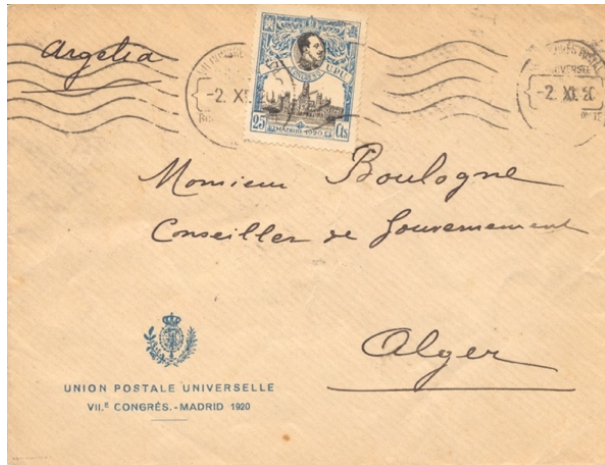 Argelia
-2. XI. 20
-2. XI. 20
U.P.U.
25 Cts
MADRID-1920
Monsieur Boulogne
Conseiller de Gouvernement
Alger
UNION POSTALE UNIVERSELLE
VII.E CONGRÉS.-MADRID 1920